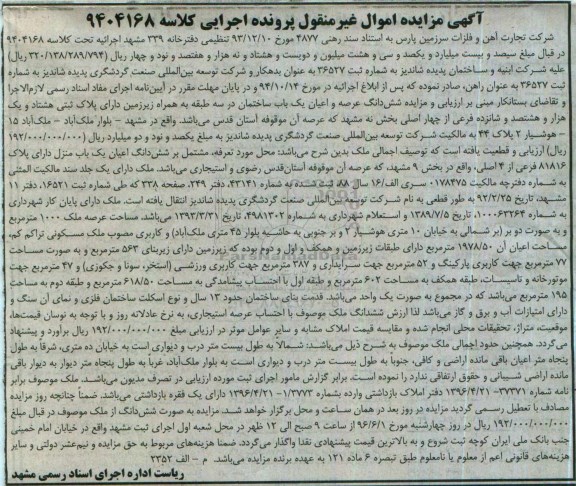 آگهی مزایده اموال غیرمنقول پرونده اجرایی کلاسه ۹۴۰۴۱۶۸
شرکت تجارت آهن و فلزات سرزمین پارس به استناد سند رهنی ۴۸۷۷ مورخ ۹۳/۱۲/۱۰ تنظیمی دفترخانه ۳۳۹ مشهد اجرائیه تحت کلاسه ۹۴۰۴۱۶۸
در قبال مبلغ سیصد و بیست میلیارد و یکصد و سی و هشت میلیون و دویست و هشتاد و نه هزار و هفتصد و نود و چهار ریال (۳۲۰/۱۳۸/۲۸۹/۷۹۴ ریال)
علیه شرکت ابنیه و ساختمان پدیده شاندیز به شماره ثبت ۳۶۵۲۷ به عنوان بدهکار و شرکت توسعه بین‌المللی صنعت گردشگری پدیده شاندیز به شماره
ثبت ۳۶۵۲۷ به عنوان راهن، صادر نموده که پس از ابلاغ اجرائیه در مورخ ۹۴/۱۰/۱۴ و در پایان مهلت مقرر در آیین‌نامه اجرای مفاد اسناد رسمی لازم‌الاجرا
و تقاضای بستانکار مبنی بر ارزیابی و مزایده شش‌دانگ عرصه و اعیان یک باب ساختمان در سه طبقه به همراه زیرزمین دارای پلاک ثبتی هشتاد و یک
هزار و هشتصد و شانزده فرعی از چهار اصلی بخش نه مشهد که عرصه آن موقوفه آستان قدس می‌باشد. واقع در مشهد – بلوار ملک‌آباد – ملک‌آباد ۱۵
– هوشیار ۲ پلاک ۴۴ به مالکیت شرکت توسعه بین‌المللی صنعت گردشگری پدیده شاندیز به مبلغ یکصد و نود و دو میلیارد ریال (۱۹۲/۰۰۰/۰۰۰/۰۰۰
ریال) ارزیابی و قطعیت یافته است که توصیف اجمالی ملک بدین شرح می‌باشد: محل مورد تعرفه، مشتمل بر شش‌دانگ اعیان یک باب منزل دارای پلاک
۸۱۸۱۶ فرعی از ۴ اصلی، واقع در بخش ۹ مشهد، که عرصه آن موقوفه آستان‌قدس رضوی و استیجاری می‌باشد. ملک دارای یک جلد سند مالکیت المثنی
به شماره دفترچه مالکیت ۰۱۷۸۴۷۵ سری الف/۱۶ سال ۸۸ ثبت شده به شماره ۴۳۱۴۱، دفتر ۲۴۹، صفحه ۳۳۸ که طی شماره ثبت ۱۶۵۲۱، دفتر ۱۱
مشهد، تاریخ ۹۲/۲/۲۵ به طور قطعی به نام شرکت توسعه بین‌المللی صنعت گردشگری پدیده شاندیز انتقال یافته است. ملک دارای پایان کار شهرداری
به شماره ۱۰۰۰۶۳۲۶۴، تاریخ ۱۳۸۹/۷/۵ و استعلام شهرداری به شماره ۴۹۸۱۳۰۲، تاریخ ۱۳۹۳/۳/۳۱ می‌باشد. مساحت عرصه ملک ۱۰۰۰ مترمربع
و به صورت دو بر (بر شمالی به خیابان ۱۰ متری هوشیار ۲ و بر جنوبی به حاشیه بلوار ۴۵ متری ملک‌آباد) و کاربری مصوب ملک مسکونی تراکم کم،
مساحت اعیان آن ۱۹۷۸/۵۰ مترمربع دارای طبقات زیرزمین و همکف و اول و دوم بوده که زیرزمین دارای زیربنای ۵۶۳ مترمربع و به صورت مساحت
۷۷ مترمربع جهت کاربری پارکینگ و ۵۲ مترمربع جهت سرایداری و ۳۸۷ مترمربع جهت کاربری ورزشی (استخر، سونا و جکوزی) و ۴۷ مترمربع جهت
موتورخانه و تاسیسات، طبقه همکف به مساحت ۶۰۲ مترمربع و طبقه اول با احتساب پیشامدگی به مساحت ۶۱۸/۵۰ مترمربع و طبقه دوم به مساحت
۱۹۵ مترمربع می‌باشد که در مجموع به صورت یک واحد می‌باشد. قدمت بنای ساختمان حدود ۱۳ سال و نوع اسکلت ساختمان فلزی و نمای آن سنگ و
دارای امتیازات آب و برق و گاز می‌باشد لذا ارزش ششدانگ ملک موصوف با احتساب عرصه استیجاری، به نرخ عادلانه روز و با توجه به نوسان قیمت‌ها،
موقعیت، متراژ، تحقیقات محلی انجام شده و مقایسه قیمت املاک مشابه و سایر عوامل موثر در ارزیابی مبلغ ۱۹۲/۰۰۰/۰۰۰/۰۰۰ ریال برآورد و پیشنهاد
می‌گردد. همچنین حدود اجمالی ملک موصوف به شرح ذیل می‌باشد: شمالاً به طول بیست متر درب و دیواری است به خیابان ده متری، شرقاً به طول
پنجاه متر اعیان باقی مانده اراضی و کافی، جنوباً به طول بیست متر درب و دیواری است به بلوار ملک‌آباد، غرباً به طول پنجاه متر دیوار به دیوار باقی
مانده اراضی شیبانی و حقوق ارتفاقی ندارد را نموده است. برابر گزارش مامور اجرای ثبت مورده ارزیابی در تصرف مدیون می‌باشد. ملک موصوف برابر
نامه شماره ۳۷۳۷۱– ۱۳۹۶/۴/۲۱ دفتر املاک بازداشتی وارده بشماره ۱/۳۷۷۳– ۱۳۹۶/۴/۲۱ دارای یک فقره بازداشتی می‌باشد. ضمناً چنانچه روز مزایده
مصادف با تعطیل رسمی گردید مزایده در روز بعد در همان ساعت و محل برگزار خواهد شد. مزایده به صورت شش‌دانگ از ملک موصوف در قبال مبلغ
۱۹۲/۰۰۰/۰۰۰/۰۰۰ ریال در روز چهارشنبه مورخ ۹۶/۶/۱ از ساعت ۹ صبح الی ۱۲ ظهر در محل شعبه اول اجرای ثبت مشهد واقع در خیابان امام خمینی
جنب بانک ملی ایران کوچه ثبت شروع و به بالاترین قیمت پیشنهادی نقدا واگذار می‌گردد. ضمنا هزینه‌های مربوط به حق مزایده و نیم‌عشر دولتی و سایر
هزینه‌های قانونی اعم از معلوم یا نامعلوم طبق تبصره ۶ ماده ۱۲۱ به عهده برنده مزایده می‌باشد. م – الف ۳۳۵۲
ریاست اداره اجرای اسناد رسمی مشهد